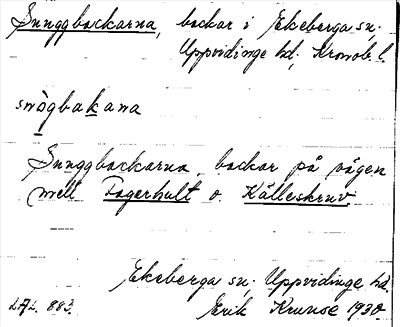 Snuggbackarna, backar i Ekeberga sn;
Uppvidinge hd; Kronob. l.
snògbakana
Snuggbackarna, backar på vägen
mell Fagerhult o. Källeskruv
Ekeberga sn; Uppvidinge hd.
LAL. 883. Erik Krunoe 1930